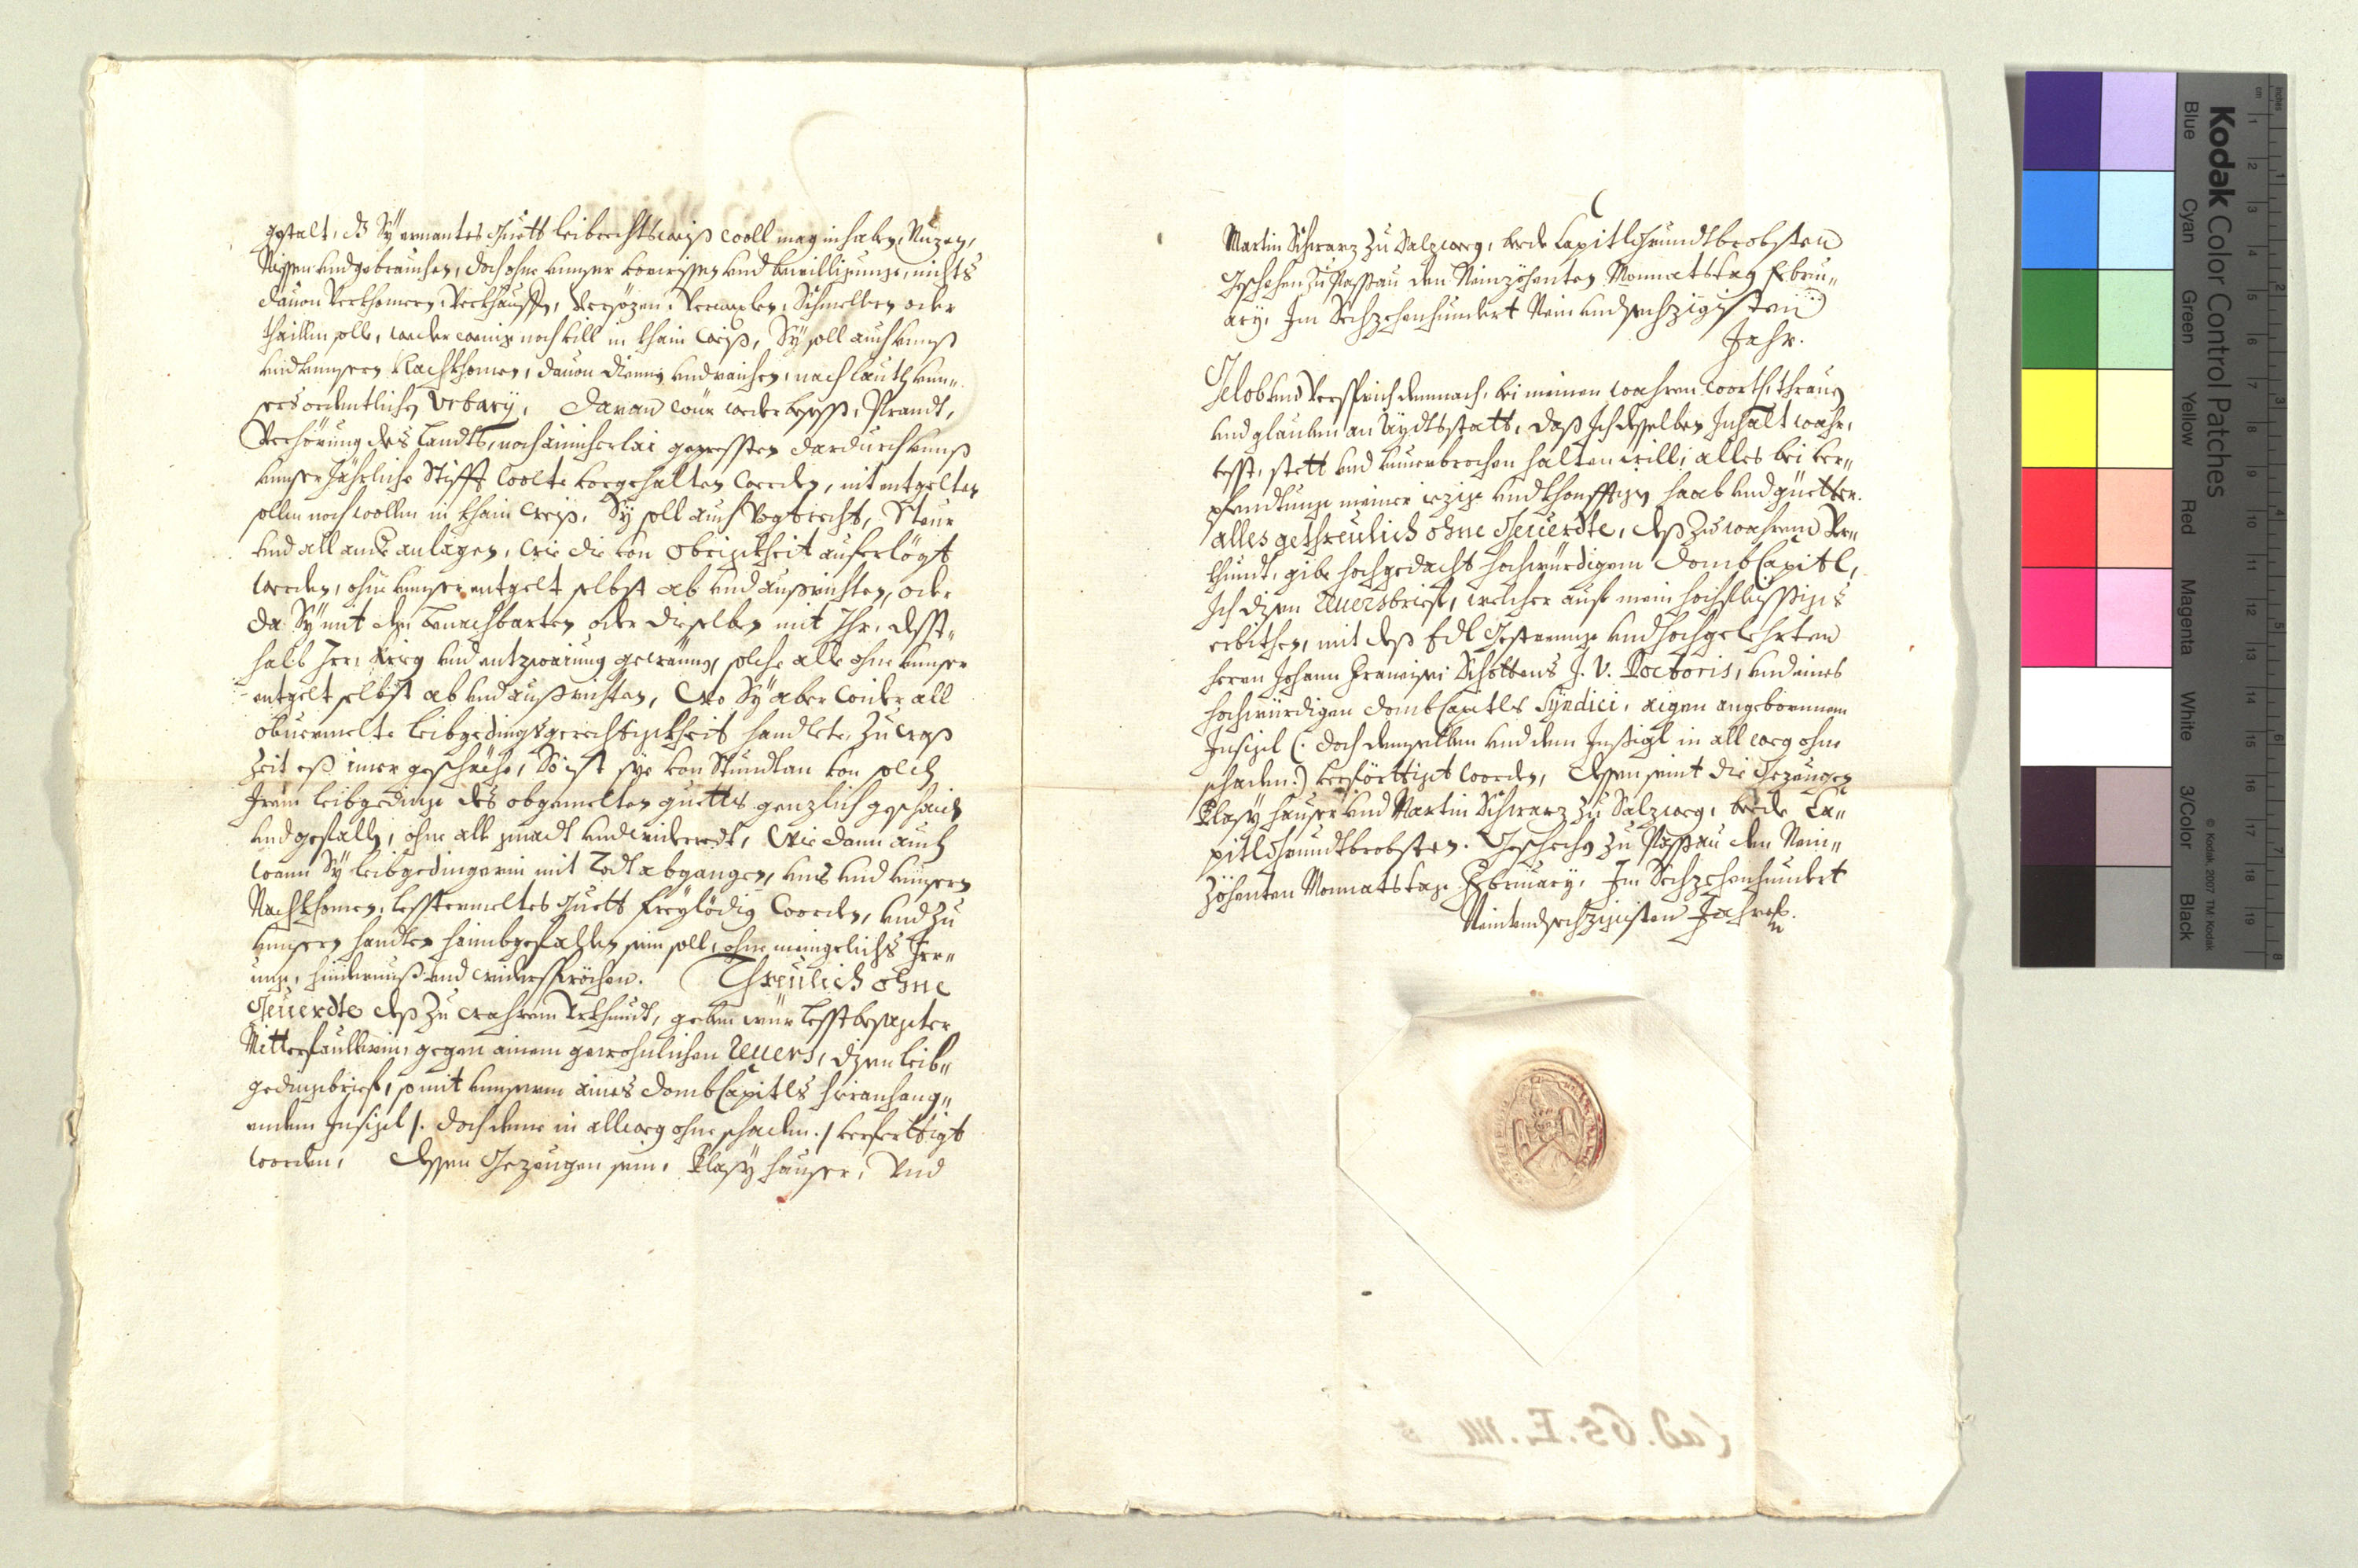 gstalt, dß Sÿ ernantes Guett leibrechtsweiß woll mag inhaben, Nuzen,
Niessen und gebrauchen, doch ohne unnser vorwissen und bewilligunge, nichts
dauon Verkhomern, Verkhauffen, Versözen, Verwexlen, Schmellern oder
thaillen solle, weder wenig noch vill in khain weiß, Sÿ soll auch unnß
und unnsern Nachkhomen, dauon diennen und raichen, nach lauth unn„
sers ordentlichen Urbarÿ, Daran wür weder bysß, Prandt,
Verhörung des Landts, noch ainicherlai gepressten dardurch unnß
unnser Jährliche Stifft wolte vorgehalten werden, nit entgelten
sollen noch wollen in khain weiß, Sÿ soll auch Vogtrecht, Steur
und all andere anlagen, wie die von Obrigkheit auferlögt
werden, ohne unnser entgelt selbst ab und außrichten, oder
da Sÿ mit den benachbarten oder dieselben mit Ihr, desst„
halb Irr, Krieg und entzwaiung gewünnen, solche alle ohne unnser
entgelt selbst ab und außrichten, Wo Sÿ aber wider all
obuermelte leibgedingsgerechtigkheit handlete, zu waß
Zeit eß imer geschäche, So ist sye von Stundt an von solch
Irem leibgeding des obgemelten guetts genzlich geschaiden
und gefallen, ohne all gnadt und widerredt, Wie dann auch
wann Sÿ leibgedingerin mit Todt abgangen, unns und unnsern
Nachkhomen, besstermeltes Guett freÿlödig worden, und zu
unnsern handten haimbgefallen sein soll, ohne meingelichs Irr„
ung, hindernuß und widersprochen. Threulich ohne
Geuerdte deß zu wahrem Urkhundt, geben wür besstbesagter
Mitterpaulbeirin gegen ainem gewohnlichen Reuers, disen leib„
gedingbrief, so mit unnserm aines dombCapitls hieranhang„
enden Insigel /. doch deme in allweg ohne schaden ./ verferttigt
worden, dessen Gezeugen sein, Blasÿ hauser, Und
Martin Schwarz zu Salzweg, beede Capitlgrundtbrobsten
Geschehen zu Passau den Neinzöhenten Monnatstag Februu„
arÿ, Im Sechzehenhundert Nein und sechzigisten
Jahr.
Gelob und Versprich demnach, bei meinen wahren worth, threuen
und glauben an Aÿdtsstatt, daß Ich desselben Inhalt wahr,
vesst, stett und unuerbrochen halten will, alles bei ver„
pfendtung meiner iezig und khonfftigen haab und güetter.
alles gethreulich ohne Geuerdte, deß zu wahrem Ur„
khundt, gibe hochgedacht hochwürdigem DombCapitl,
Ich disen Reuersbrief, welcher auf mein hochfleissigis
erbithen, mit deß Edl Gestrenng und hochgelehrten
herrn Johann Francisci Scholtens J. V. Doctoris, und eines
hochwürdigen dombCapitls Syndici, aigen angebornnem
Insigel (. doch demselben und dem Insigl in all weg ohne
schaden.) verförttigt worden, dessen seint die Gezeugen
Blasÿ hauser und Martin Schwarz zu Salzweg, beede Ca„
pitlgrundtbrobsten. Geschechen zu Passau den Nein„
zöhenten Monnatstag Februarÿ, Im Sechzehenhundert
Nein und sechzigisten Jahres.
Lad. 65. E.